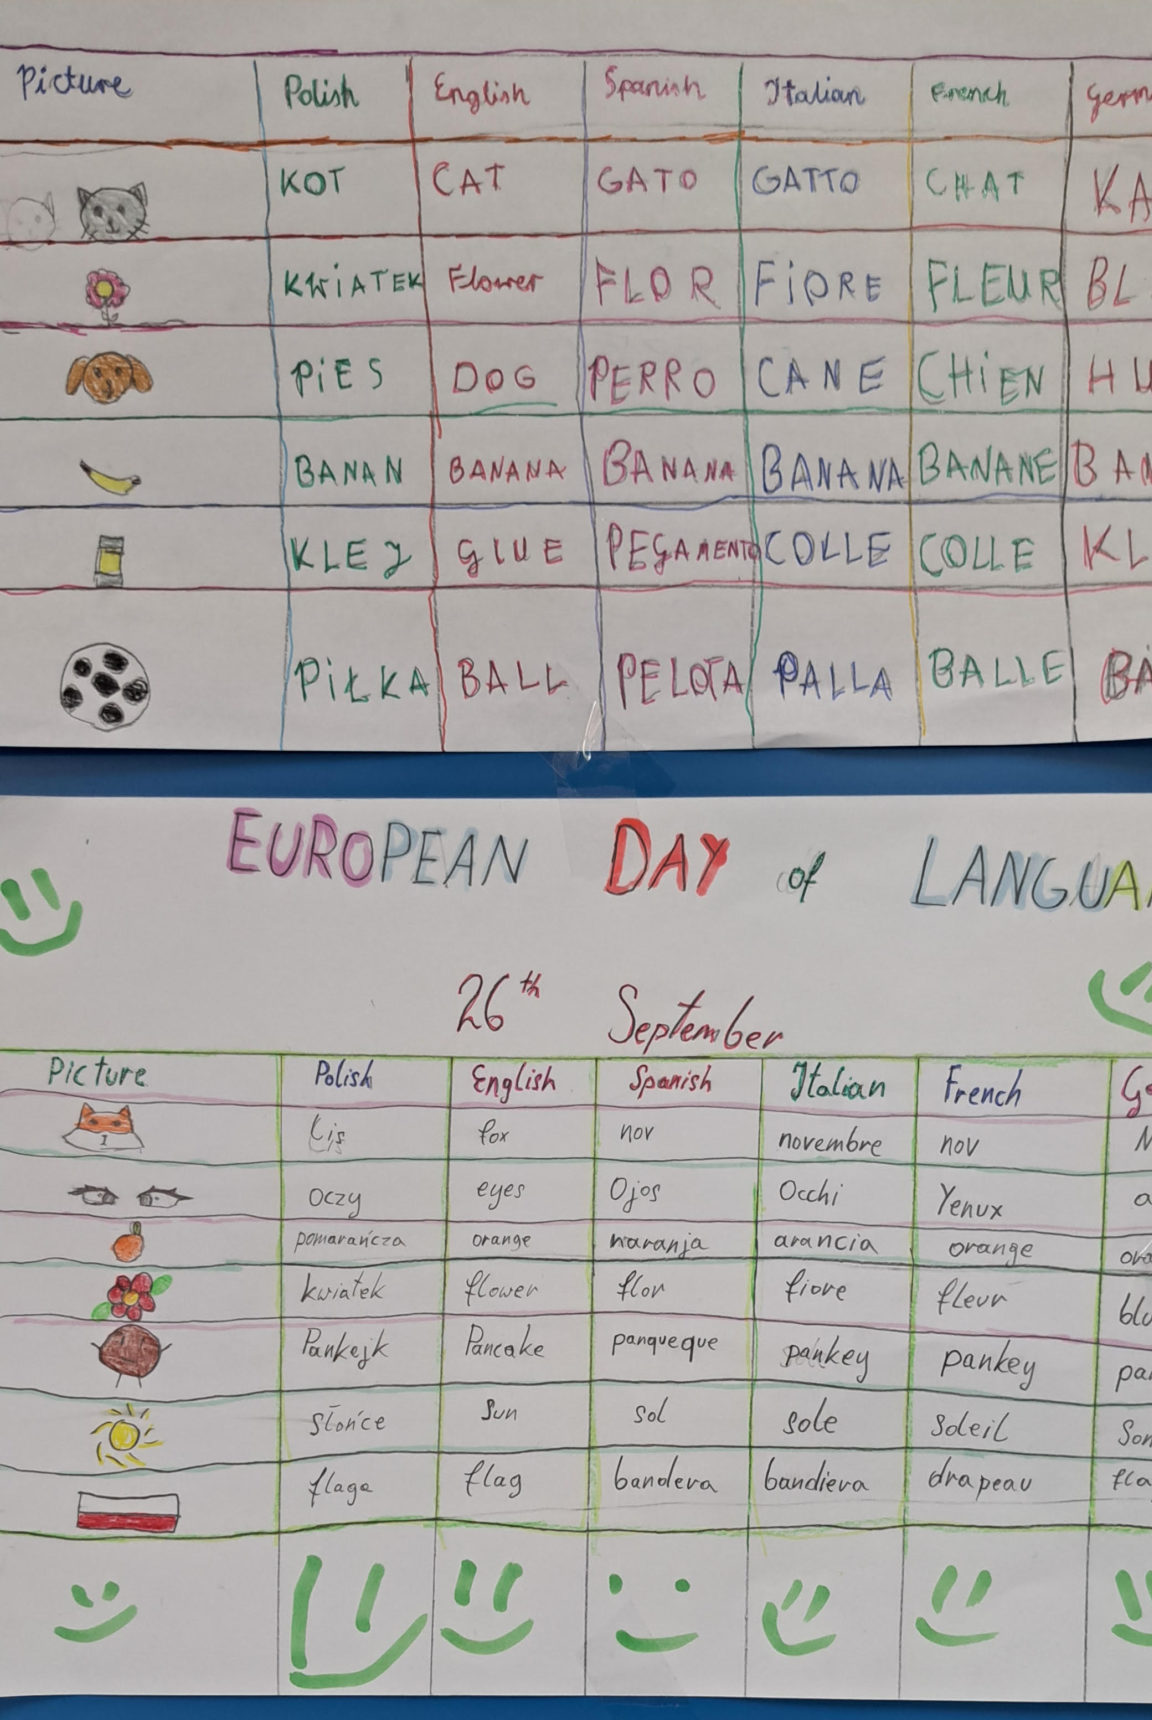 Picture Polish English Spanish Italian French Germ
KOT CAT GATO GATTO CHAT KA
KWiATEK Flower FLOR FiORE FLEUR BL
PiES DOG PERRO CANE CHiEN HU
BANAN BANANA BANANA BANANA BANANE BAN
KLEJ GLUE PEGAMENTO COLLE COLLE KL
PiŁKA BALL PELOTA PALLA BALLE BA
EUROPEAN DAY of LANGUA
26th September
Picture Polish English Spanish Italian French Ge
Lis fox nov novembre nov N
oczy eyes Ojos Occhi Yenux a
pomarańcza orange naranja arancia orange ora
kwiatek flower flor fiore fleur blu
Pankejk Pancake panqueque pankey pankey pan
słońce sun sol sole soleil Son
flaga flag bandera bandiera drapeau fla